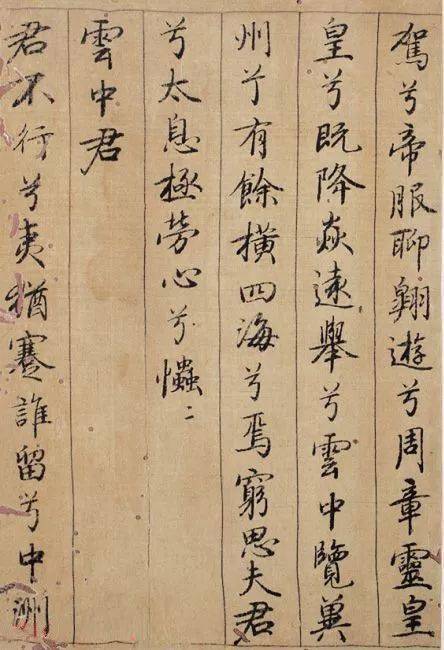 駕兮帝服聊翱遊兮周章靈皇
皇兮既降焱遠舉兮雲中覽兾
州兮有餘橫四海兮焉窮思夫君
兮太息極勞心兮𢥞〻
雲中君
君不行兮夷猶蹇誰留兮中洲